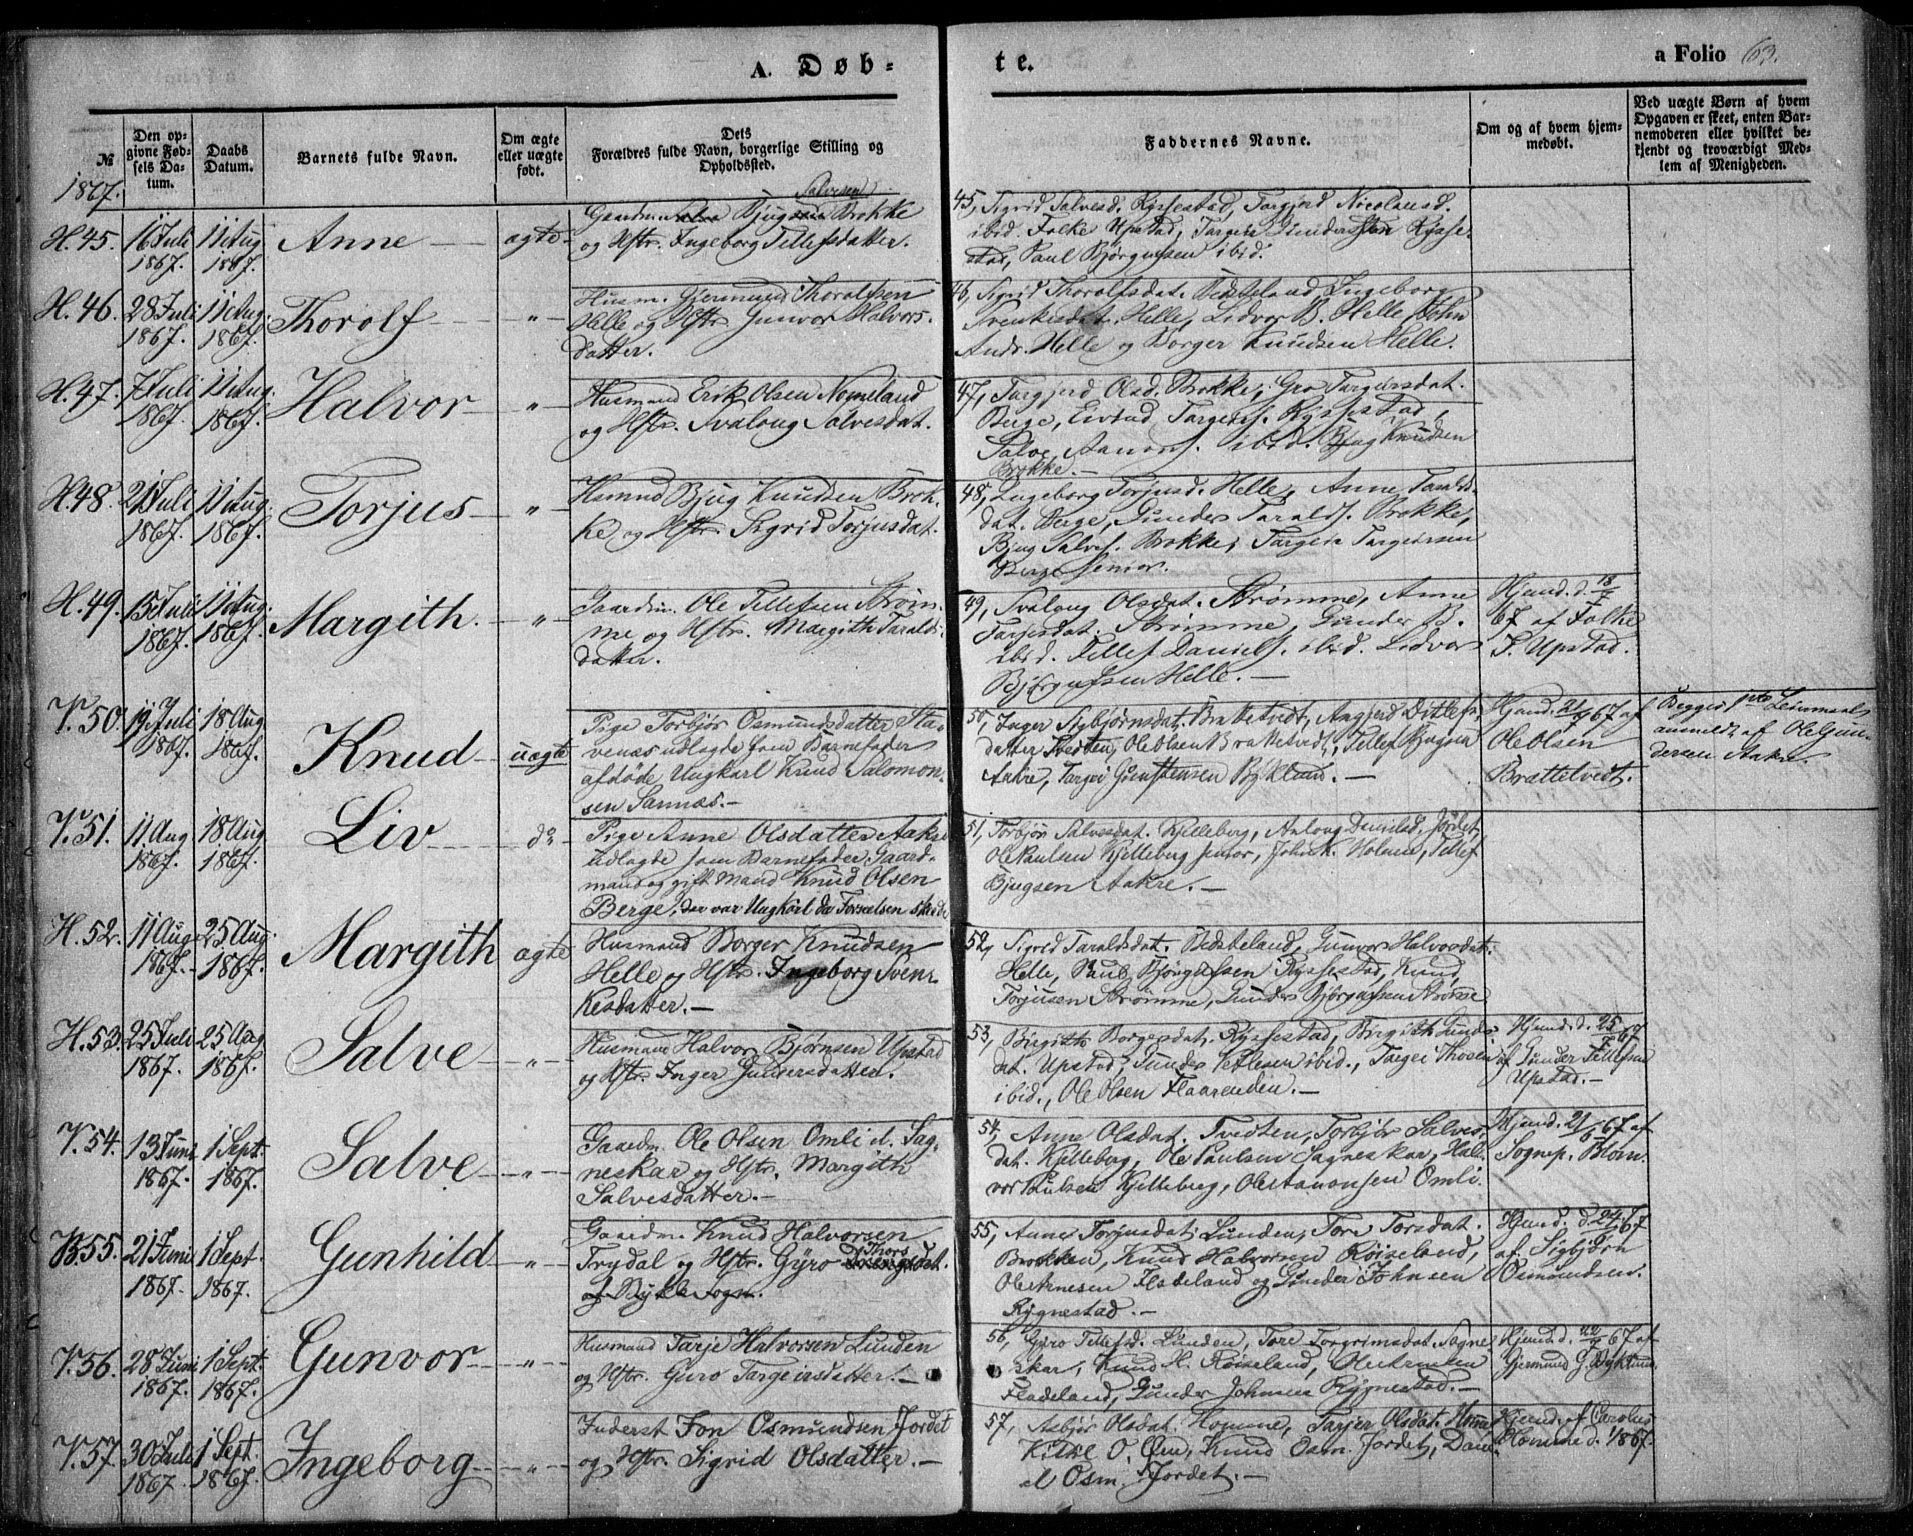 A. Døb-
te.
a Folio 63.
№
Den op-
givne Fød-
sels Da-
tum.
Daabs
Datum.
Barnets fulde Navn.
Om ægte
eller uægte
født.
Dets
Forældres fulde Navn, borgerlige Stilling og
Opholdssted.
Faddernes Navne.
Om og af hvem hjem-
medøbt.
Ved uægte Børn af hvem
Opgaven er skeet, enten Bar-
nemoderen eller hvilket be-
kjendt og troværdigt Med-
lem af Menigheden.
1867.
H. 45. 16 Juli 1867. 11 Aug. 1867. Anne ægte
Salvesen
Gaardm. Bjug Brokke
og Hstr. Ingeborg Tellefsdatter.
45, Sigrid Salvesd. Ryssestad, Targjerd Nicolausd.
ibid. Folke Upstad, Targeir Gundersen Rysse-
stad, Paul Bjørgufsen ibid.
H. 46. 28 Juli 1867. 11 Aug. 1867. Thorolf "
Husm. Gjermund Thorolfsen
Helle og Hstr. Gunvor Halvors-
datter.
46, Sigrid Thorolfsdat. Ingeborg
Svenkesdat. Helle, Lidvor B. Helle, John
Andr. Helle og Borger Knudsen Helle.
H. 47. 7 Juli 1867. 11 Aug. 1867. Halvor "
Husmand Erik Olsen Nomeland
og Hstr. Svalaug Salvesdat.
47, Targjerd Olsd. Brokke, Gro Targeirsdat.
Berge, Eivind Targeirs. Ryssestad,
Salve Aanons. ibid. Bjug Knudsen
Brokke.
H. 48. 21 Juli 1867. 11 Aug. 1867. Torjus "
Husmnd Bjug Knudsen Brok-
ke og Hstr. Sigrid Torjusdat.
48, Ingeborg Torjusd. Helle, Anne Taralds-
dat. Berge, Gunder Taralds. Brokke,
Bjug Salves. Brokke, Targeir Targeirsen
Berge senior.
H. 49. 15 Juli 1867. 11 Aug. 1867. Margith. "
Gaardm. Ole Tellefsen Strøm-
me og Hstr. Margith Taralds-
datter.
49, Svalaug Olsdat. Strømme, Anne
Tarjesdat. Strømme, Gunder B.
ibid. Tellef Daniels. ibid. Lidvor
Bjørgufsen Helle.
Hjemd. d. 18/7
67 af Folke
Upstad.
V. 50. 19 Juli 1867. 18 Aug 1867. Knud uægte
Pige Torbjør Osmundsdatter Sta-
venæs udlagde som Barnefader
afdøde Ungkarl Knud Salomon-
sen Sannæs.
50, Inger Sigbjørnsdat. Brattetvedt, Angjerd Ditlefs-
datter Tvedten, Ole Olsen Brattetvedt, Tellef Bjugsen
Aakre, Targei Gunstensen Bykland.
Hjemd. 21/7 67 af
Ole Olsen
Brattetvedt.
Begges Leiermaal
anmeldt af Ole Gun-
dersen Aakre.
V. 51. 11 Aug 1867. 18 Aug 1867. Liv do
Pige Anne Olsdatter Aakre
udlagde som Barnefader Gaard-
mand og gift Mand Knud Olsen
Berge, der var Ungkarl da Forseelsen skede
51, Torbjør Salvesdat. Kjelleberg, Anlaug Jordet,
Ole Paulsen Kjelleberg junior, John K. Holmen, Tellef
Bjugsen Aakre.
H. 52. 11 Aug. 1867. 25 Aug. 1867. Margith ægte
Husmand Borger Knudsen
Helle og Hstr. Ingeborg Sven-
kesdatter.
52, Sigrid Taraldsdat. Gunvor Halvorsdat.
Helle, Paul Bjørgufsen Ryssestad, Knud
Torjusen Strømme, Gunder Bjørgufsen Strømme
H. 53. 25 Juli 1867. 25 Aug 1867. Salve "
Husmand Halvor Bjørnsen Upstad
og Hstr. Inger Gundersdatter.
53, Birgitte Borgersdat. Ryssestad, Birgith Gunders-
dat. Upstad, Gunder Ketlesen ibid., Targei Thorsen
ibid., Ole Olsen Flaarenden.
Hjemd. d. 25/7 67
af Gunder Tellefsen
Upstad.
V. 54. 13 Juni 1867. 1 Sept. 1867. Salve "
Gaardm. Ole Olsen Omli el. Sag-
neskar og Hstr. Margith
Salvesdatter.
54, Anne Olsdat. Tvedten, Torbjør Salves-
dat. Kjelleberg, Ole Paulsen Sagneskar, Hal-
vor Paulsen Kjelleberg, Ole Aanonsen Omli.
Hjemd. 21/6 67 af
Sognep. Blom.
B. 55. 21 Juni 1867. 1 Sept 1867. Gunhild "
Gaardm. Knud Halvorsen
Trydal og Hstr. Gyro Thorsdat.
af Bykle Sogn.
55, Anne Torjusdat. Lunden, Tore Torsdat.
Brokken, Knud Halvorsen Røiseland,
Ole Arnesen Fladeland og Gunder Johnsen
Rygnestad.
Hjemd. d. 24/6 67
af Sigbjørn
Osmundsen.
V. 56. 28 Juni 1867. 1 Sept. 1867. Gunvor "
Husmand Tarje Halvorsen Lunden
og Hstr. Guro Targeirsdatter.
56, Gyro Tellefsd. Lunden, Tore Torgrimsdat. Sagne-
skar, Knud H. Røiseland, Ole Arnesen
Fladeland, Gunder Johnsen Rygnestad.
Hjemd. d. 22/7 67 af
Gjermund G. Bykland.
V. 57. 30 Juli 1867. 1 Sept. 1867. Ingeborg "
Inderst Jon Osmundsen Jordet
og Hstr. Sigrid Olsdatter.
57, Asbjør Olsdat. Homme, Tarjer Olsdat. Homme
Kittel O. Øen, Knud Osm. Jordet, Dani-
el Osm. Jordet.
Hjemd. af Carolus
Homme d. 1867.